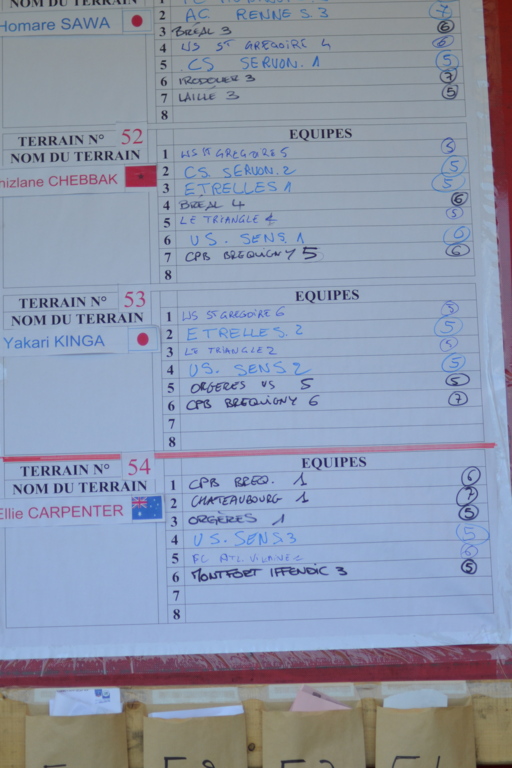 NOM DU TERRAIN 1
Homare SAWA 2 AC RENNES. 3 7
3 BRÉAL 3 6
4 US ST GREGOIRE 4 6
5 CS SERVON. 1 5
6 IRODOUER 3 7
7 LAILLÉ 3 5
8
TERRAIN N° 52 EQUIPES
NOM DU TERRAIN 1 US ST GREGOIRE 5 5
hizlane CHEBBAK 2 CS SERVON. 2 5
3 ETRELLES 1 5
4 BRÉAL 4 6
5 LE TRIANGLE 1 5
6 US. SENS. 1 6
7 CPB BREQUIGNY 5 6
8
TERRAIN N° 53 EQUIPES
NOM DU TERRAIN 1 US ST GREGOIRE 6 5
Yakari KINGA 2 ETRELLES. 2 5
3 LE TRIANGLE 2 5
4 US. SENS 2 5
5 ORGERES US 5 5
6 CPB BREQUIGNY 6 7
7
8
TERRAIN N° 54 EQUIPES
NOM DU TERRAIN 1 CPB BREQ. 1 6
Ellie CARPENTER 2 CHATEAUBOURG 1 7
3 ORGÈRES 1 5
4 US. SENS 3 5
5 FC ATL. VILAINE 2 6
6 MONTFORT IFFENDIC 3 5
7
8